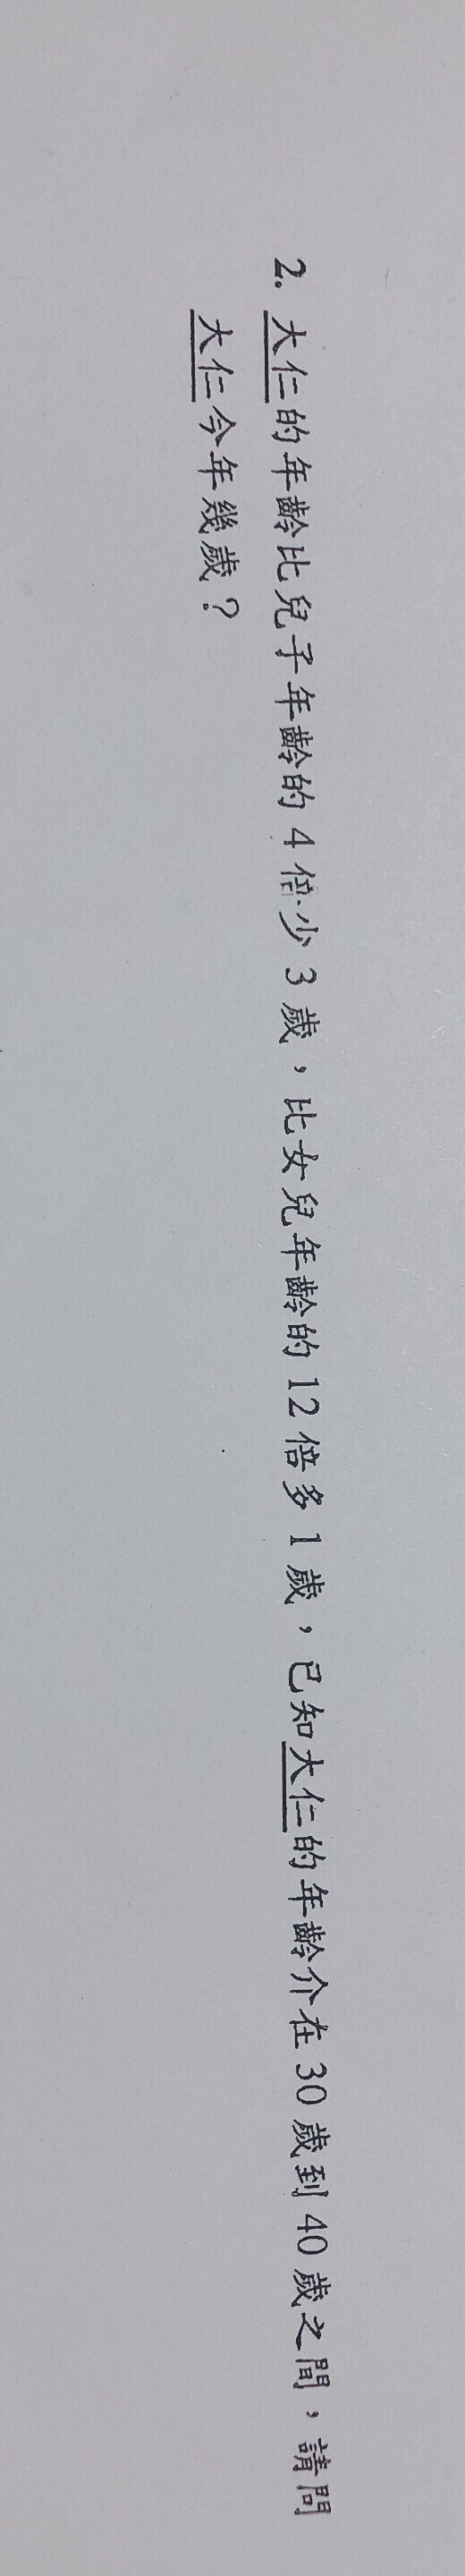 2. 大仁的年齡比兒子年齡的 4 倍少 3 歲，比女兒年齡的 12 倍多 1 歲，已知大仁的年齡介在 30 歲到 40 歲之間，請問
大仁今年幾歲？